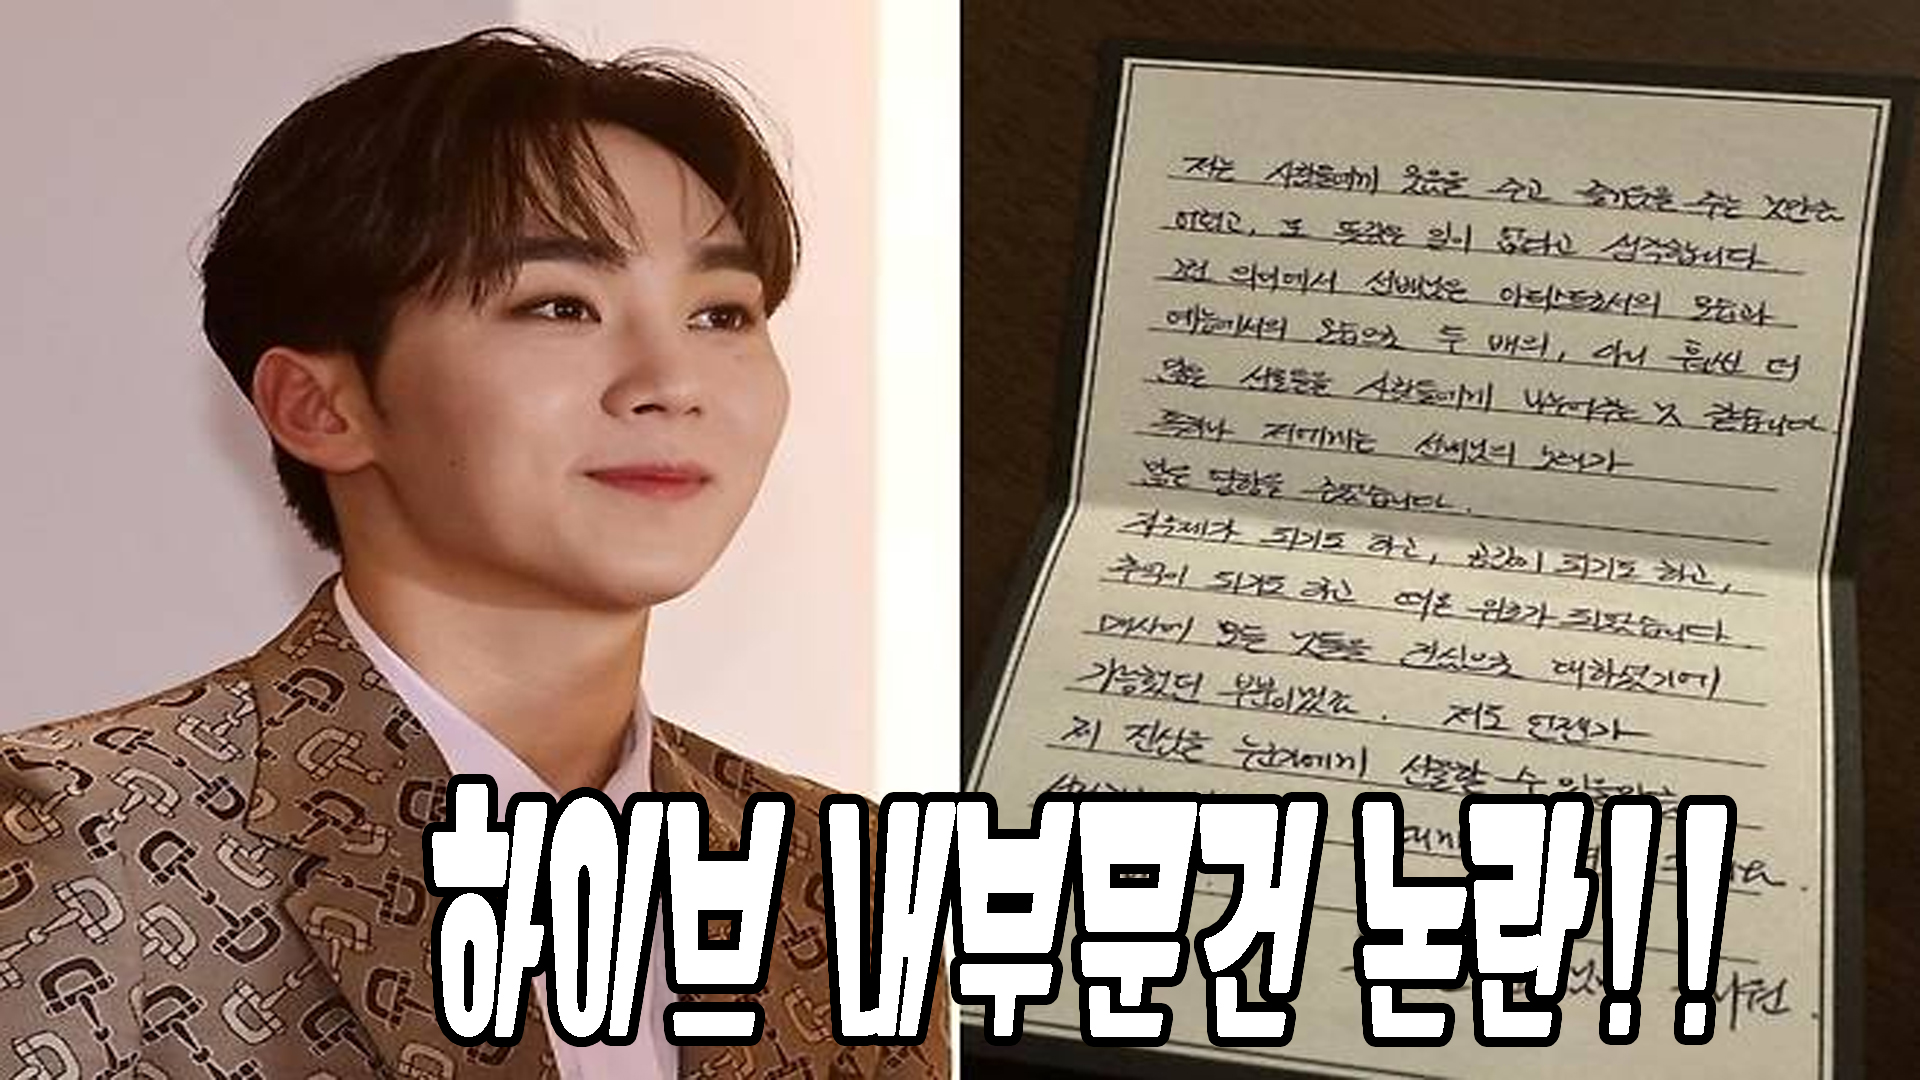 저는 사람들에게 웃음을 주고 즐거움을 주는 것만큼
어렵고, 또 뜻깊은 일이 없다고 생각합니다
그런 의미에서 선배님은 아티스트로서의 모습과
예능에서의 모습으로 두 배의, 아니 훨씬 더
많은 선물들을 사람들에게 나누어주는 것 같습니다
특히나 저에게는 선배님의 노래가
많은 영향을 주었습니다.
되기도 하고, 공감이 되기도 하고,
추억이 되기도 하고 때론 위로가 되었습니다
매사에 모든 것들을 진심으로 대하셨기에
가능했던 부분이겠죠. 저도 언젠가
제 진심을 누군가에게 선물할 수
하이브 내부문건 논란!!